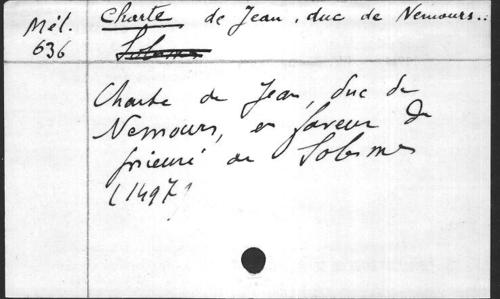 Mél. Charte de Jean, duc de Nemours..
636 Solesmes
Charte de Jean, duc de
Nemours, en faveur du
prieuré de Solesmes
(1497)